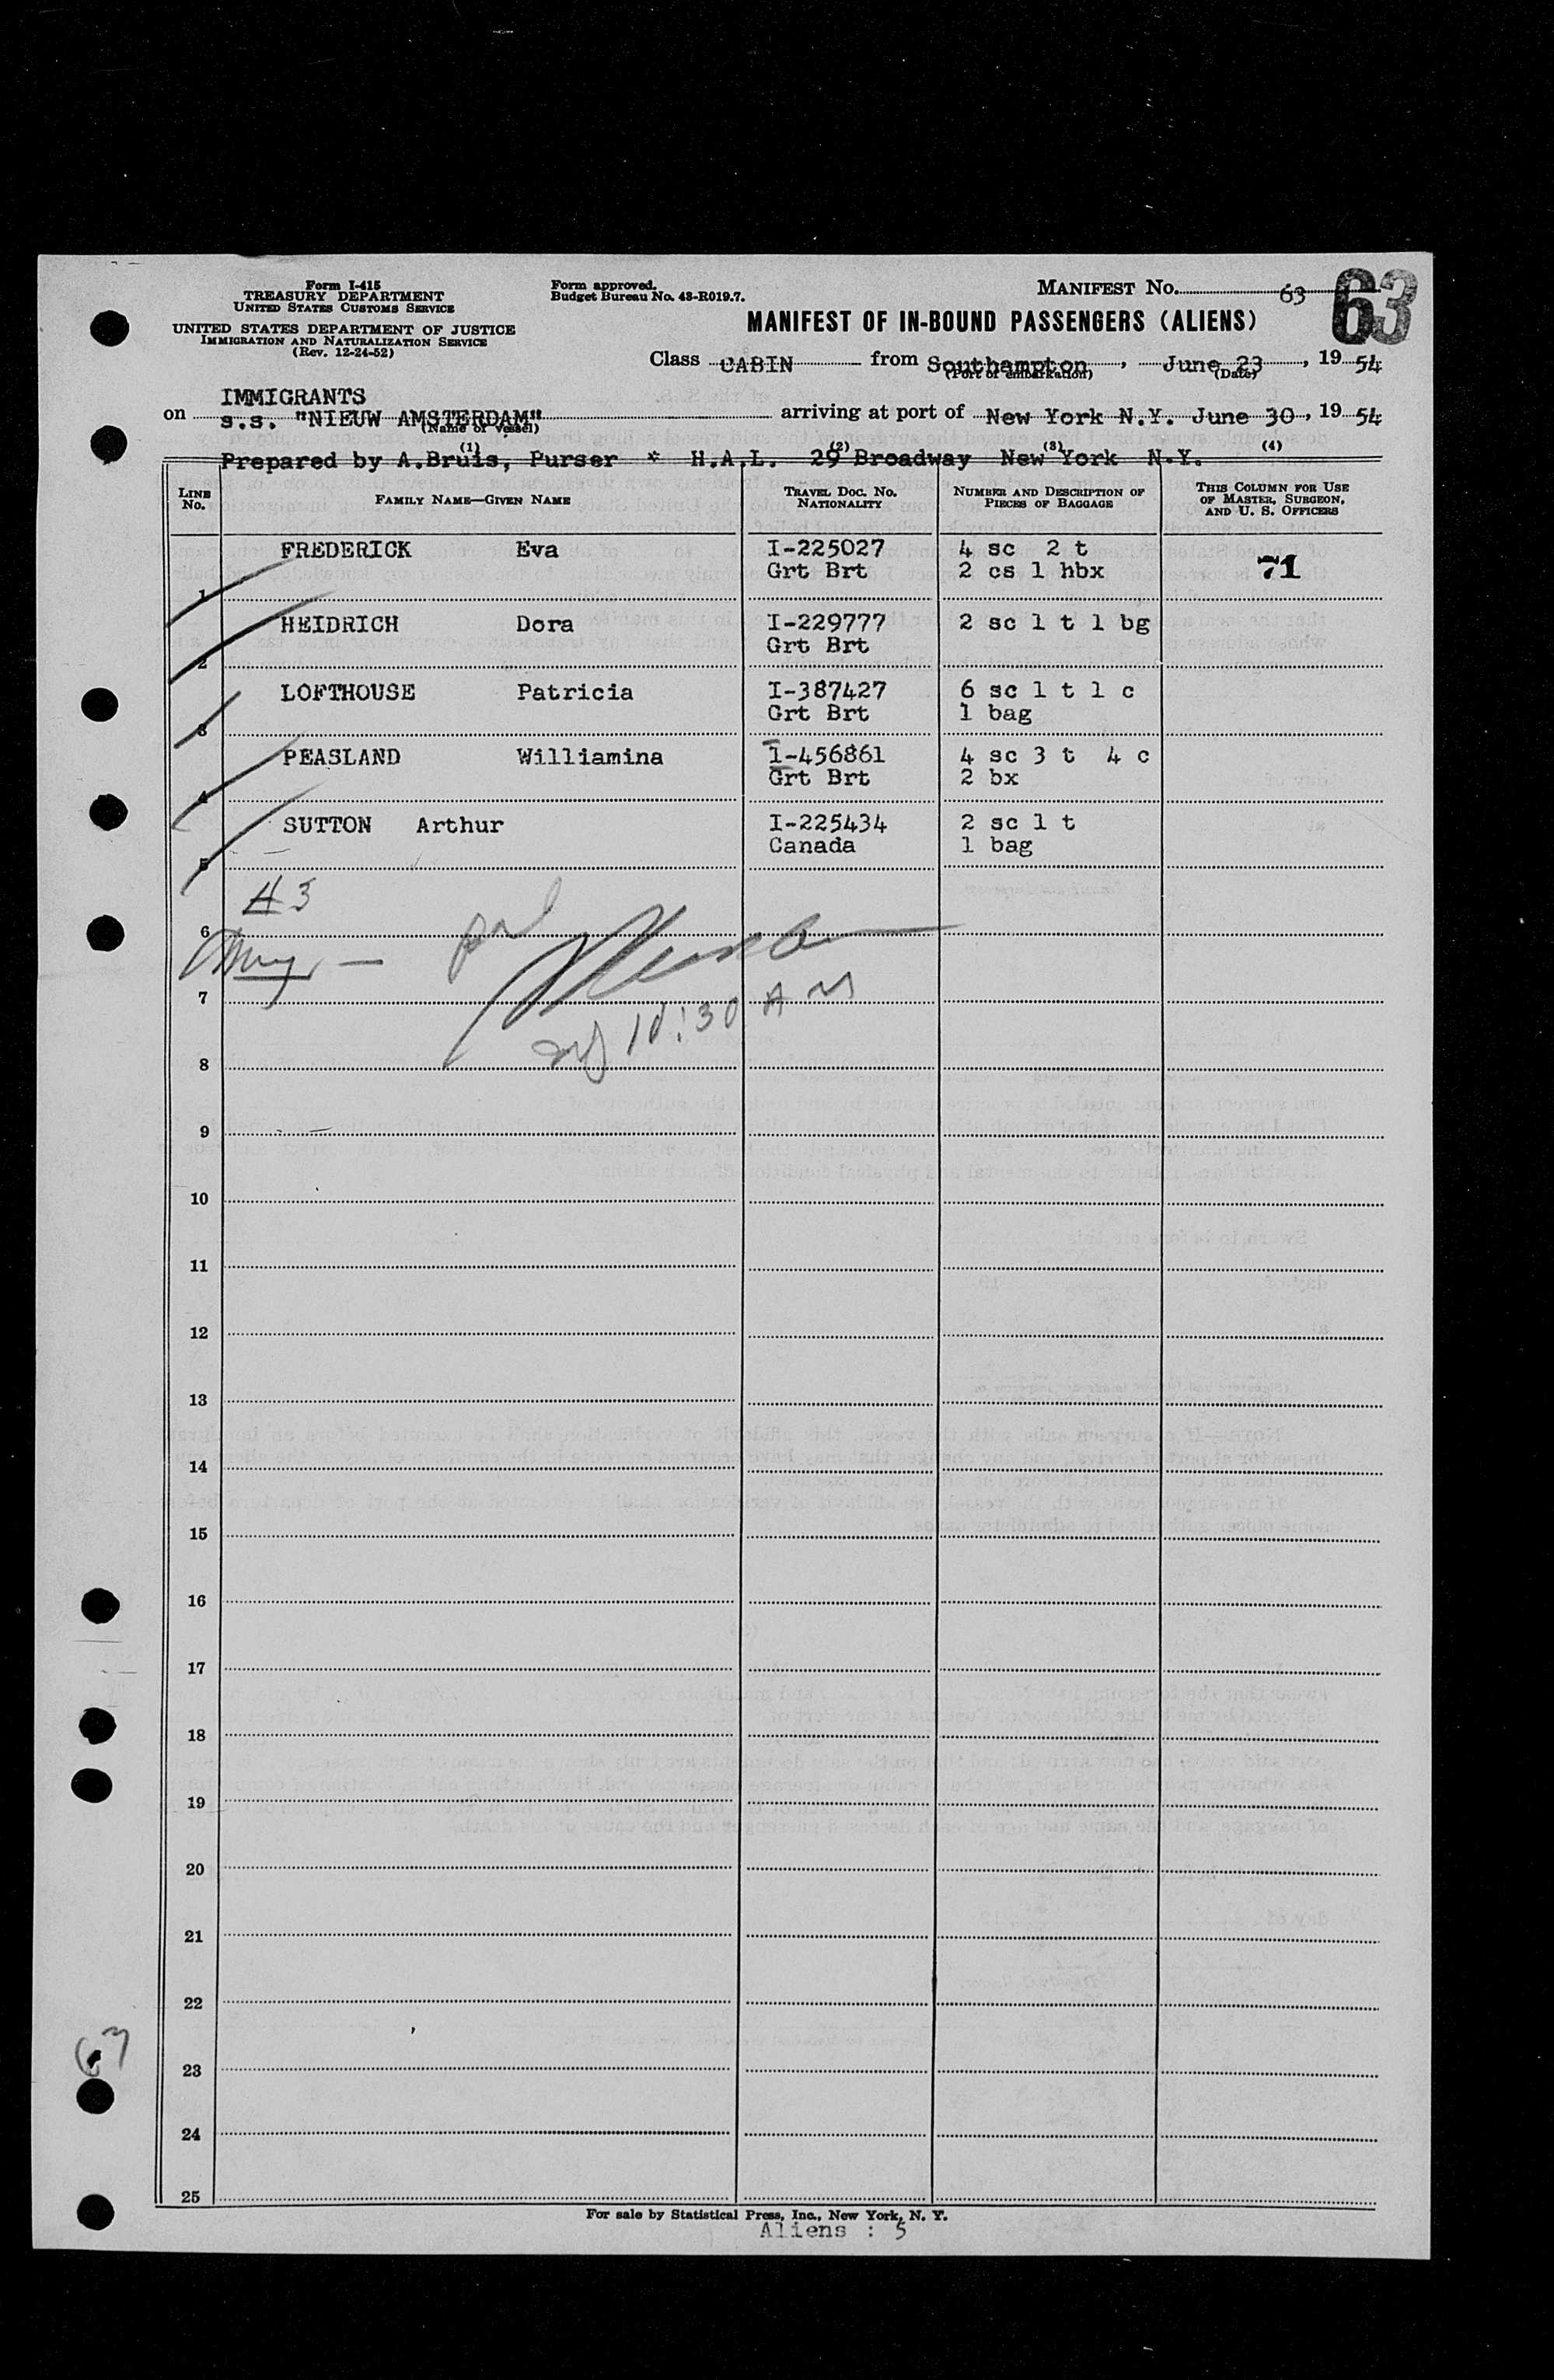 Form I-415
TREASURY DEPARTMENT
UNITED STATES CUSTOMS SERVICE
UNITED STATES DEPARTMENT OF JUSTICE
IMMIGRATION AND NATURALIZATION SERVICE
(Rev. 12-24-52)
Form approved.
Budget Bureau No. 43-R019.7.
MANIFEST No. 63
63
MANIFEST OF IN-BOUND PASSENGERS (ALIENS)
Class CABIN from Southampton, June 23, 19 54
(Port of embarkation) (Date)
IMMIGRANTS
on s.s. "NIEUW AMSTERDAM" arriving at port of New York N.Y. June 30, 19 54
(Name of vessel)
(1) (2) (3) (4)
Prepared by A.Bruis, Purser * H.A.L. 29 Broadway New York N.Y.
LINE No. FAMILY NAME—GIVEN NAME TRAVEL DOC. No. NATIONALITY NUMBER AND DESCRIPTION OF PIECES OF BAGGAGE THIS COLUMN FOR USE OF MASTER, SURGEON, AND U. S. OFFICERS
FREDERICK Eva I-225027 4 sc 2 t
Grt Brt 2 cs 1 hbx 71
1
HEIDRICH Dora I-229777 2 sc 1 t 1 bg
Grt Brt
2
LOFTHOUSE Patricia I-387427 6 sc 1 t 1 c
Grt Brt 1 bag
3
PEASLAND Williamina I-456861 4 sc 3 t 4 c
Grt Brt 2 bx
4
SUTTON Arthur I-225434 2 sc 1 t
Canada 1 bag
5
6
7
10:30 AM
8
9
10
11
12
13
14
15
16
17
18
19
20
21
22
23
24
25
For sale by Statistical Press, Inc., New York, N. Y.
Aliens : 5